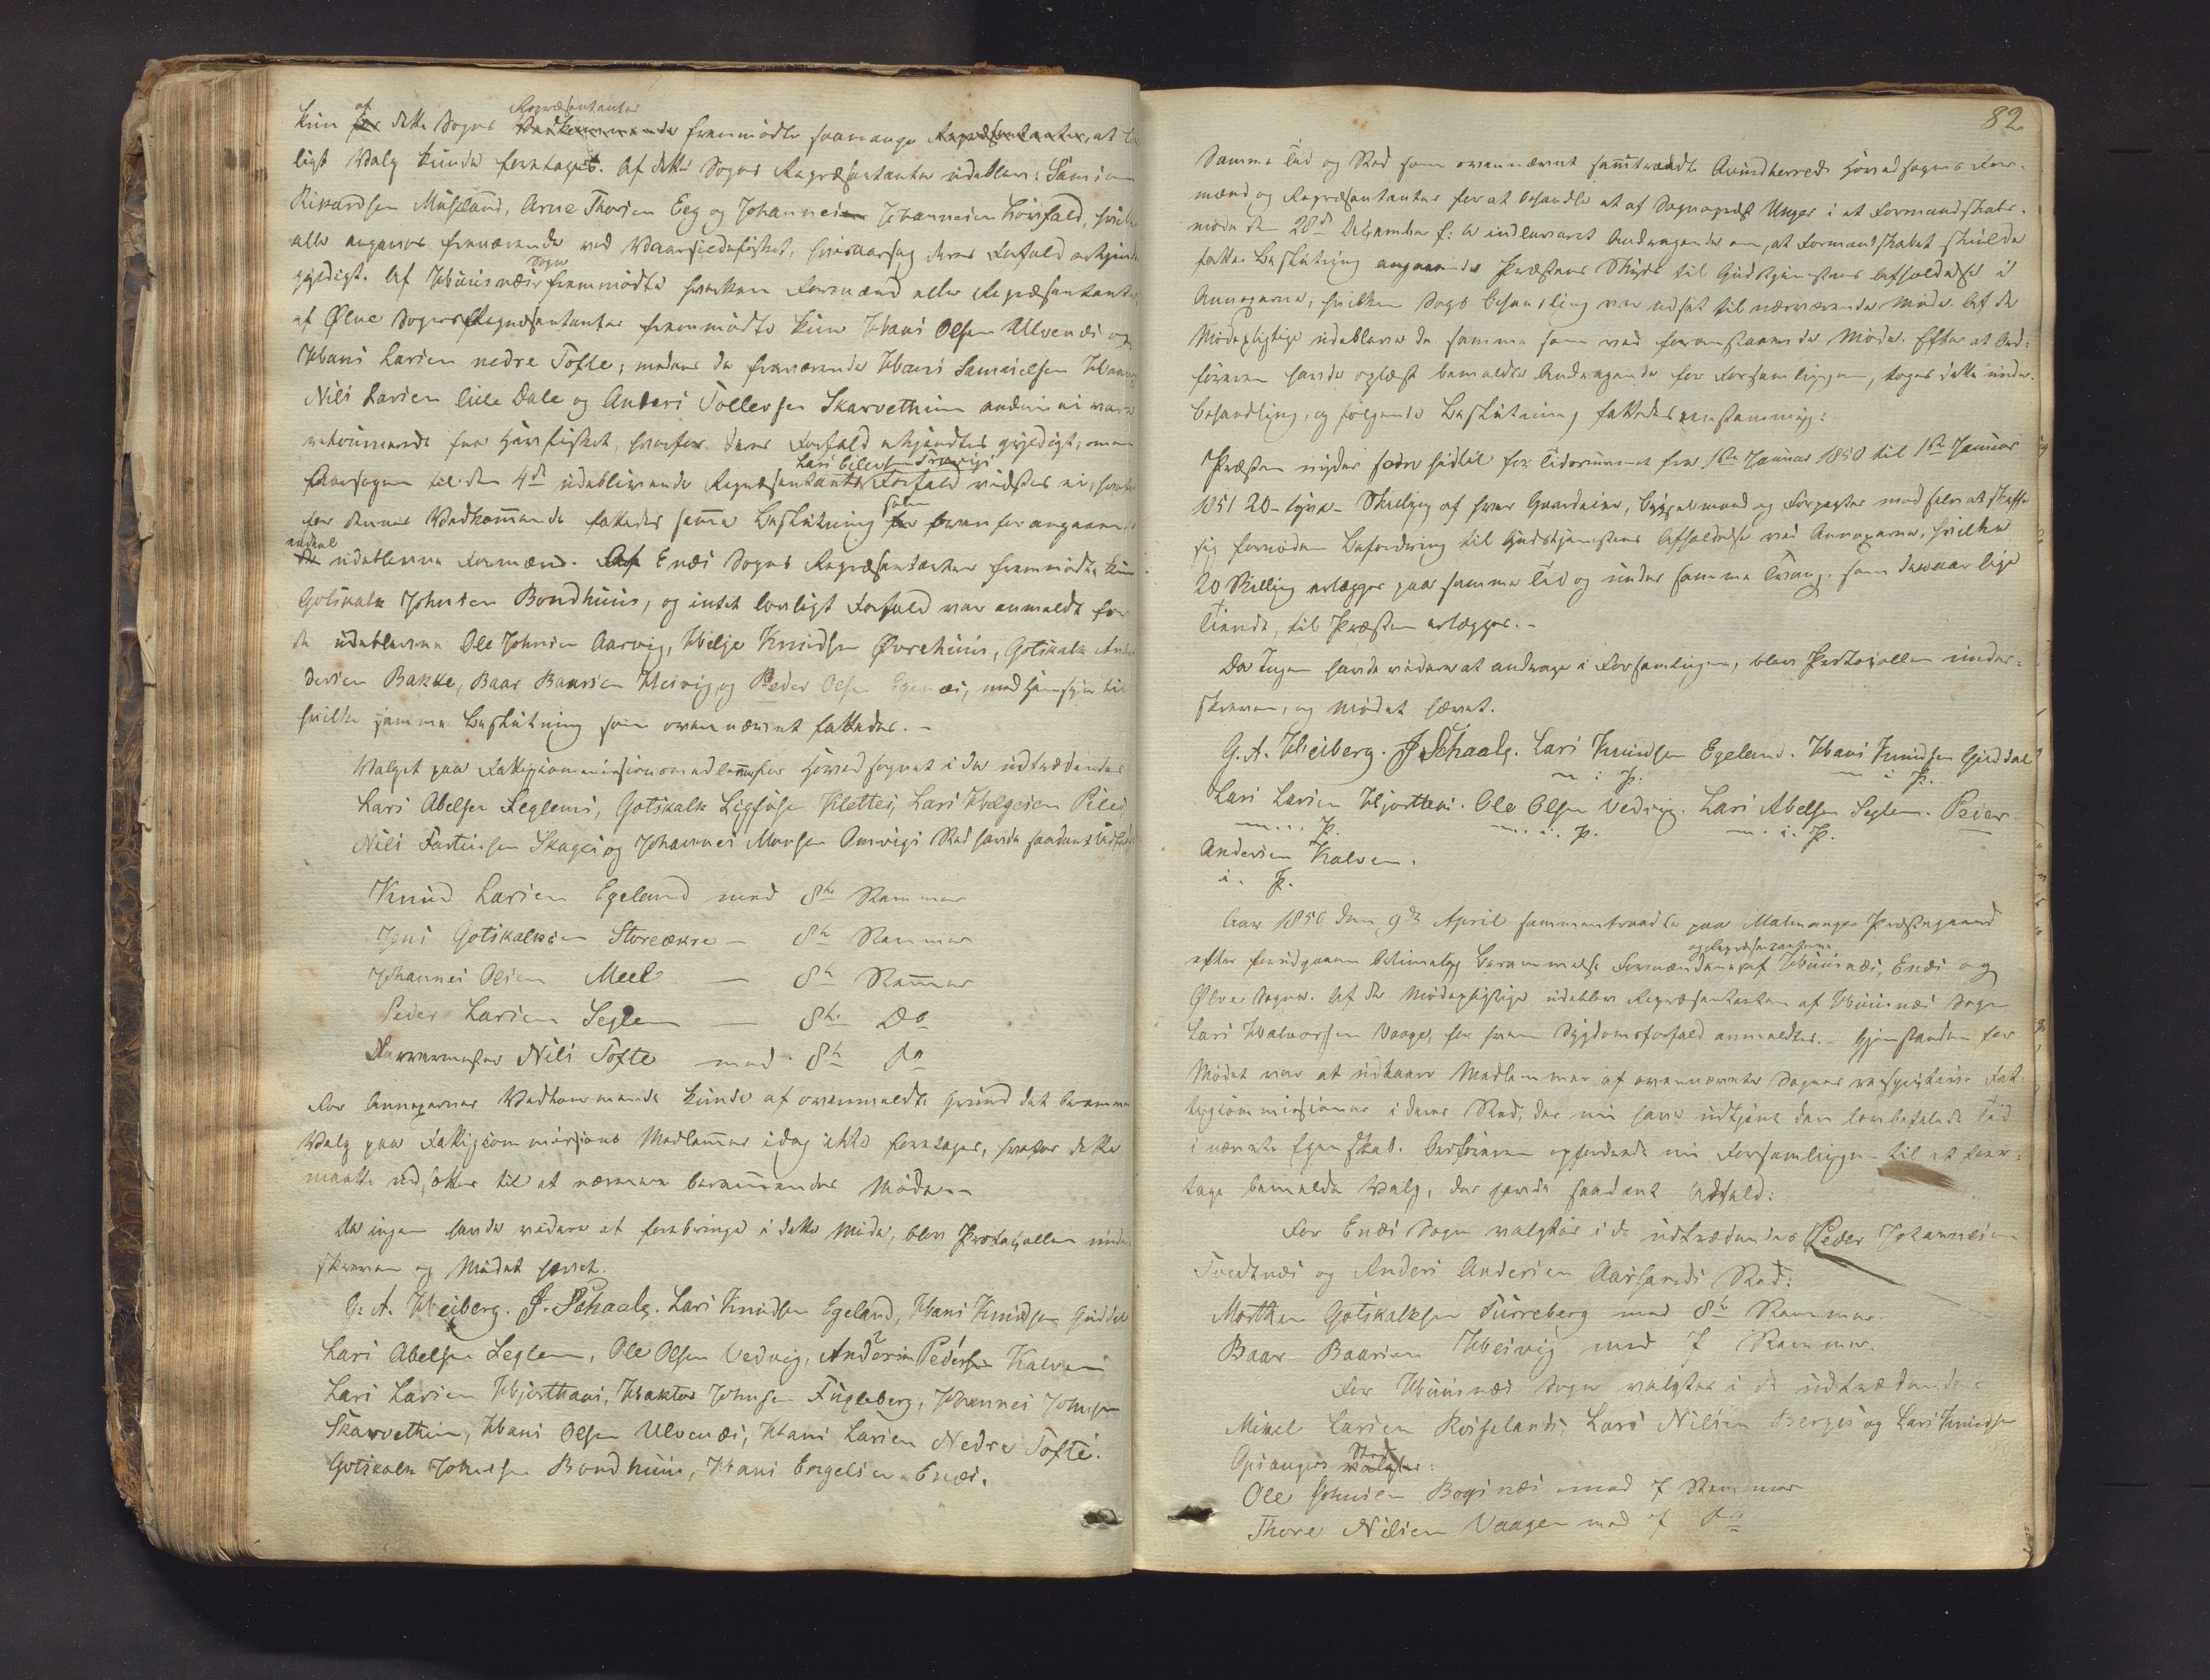 kun af dette Sogns Repræsentanter fremmødte saamange, at
ligt Valg kunde foretages. Af dette Sogns Repræsentanter udebleve: Samson
Rikardsen Musland, Arne Thorsen Eeg og Johannes Johannesen Løvfald, hvilke
alle angaves fraværende ved Vaarsildefisket, hvisaarsag deres Forfald erkjendtes
gyldigt. Af Huusnæs Sogn fremmødte hverken Formænd eller Repræsentanter,
af Ølve Sogns Repræsentanter fremmødte kun Hans Olsen Ulvenæs og
Hans Larsen nedre Tofte; medens de fraværende Hans Samuelsen
Nils Larsen lille Dale og Anders Tollevsen Skarvethun endnu ei vare
retournerede fra Haarfisket, hvorfor deres Forfald erkjendtes gyldigt; men
Lars Eilevsen
Aarsagen til den 4de udeblivende Repræsentants Forfald vidstes ei, hvorfor
for dennes Vedkommende fattedes samme Beslutning som ovenfor angaaende
endeel udeblevne Formænd. Af Enæs Sogns Repræsentanter fremmødte kun
Gotskalk Johnsen Bondhuus, og intet lovligt Forfald var anmeldt for
de udeblevne Ole Johnsen Aarvig, Helje Knudsen Øvrehuus, Gotskalk An-
dersen Bakke, Baar Baarsen Hesvig, og Peder Olsen Egenæs, med Hensyn til
hvilke samme Beslutning som ovennævnt fattedes.–
Valget paa Fattigkommissionsmedlemmer for Hovedsognet i de udtrædendes
Lars Abelsen Seglems, Gotskalk Sigfusen Klettes, Lars Helgesen Piles,
Nils Fartinsen Skages og Johannes Monsen Omvigs Sted havde saadant Udfald
Knud Larsen Egeland med 8te Stemmer
Jens Gotskalksen Storeækre – 8te Stemmer
Johannes Olsen Mæl — 8te Stemmer
Peder Larsen Seglem — 8te Do
Nils Tofte med 8te do
For Annexernes Vedkommende kunde af ovenmeldte Grund det berammede
Valg paa Fattigkommissions Medlemmer idag ikke foretages, hvorfor dette
maatte udsættes til et nærmere berammendes Møde.–
Da ingen havde videre at frembringe i dette Møde, blev Protokollen under-
skreven og Mødet hævet.
G. A. Heiberg. J. Schaale. Lars Knudsen Egeland, Hans Knudsen Guddal
Lars Abelsen Seglem, Ole Olsen Vedvig, Anders Pedersen Kalven
Lars Larsen Hjorthaus, Haktor Johnsen Fugleberg, Johannes Johnsen
Skarvethun, Hans Olsen Ulvenæs, Hans Larsen Nedre Tofte.
Gotskalk Johnsen Bondhuus, Hans Engelsen Enæs.
82
Samme Tid og Sted som ovennævnt samtraadte Qvindherreds Hovedsogns For-
mænd og Repræsentanter for at behandle et af Sogneprest Unger i et Formandskabs-
møde den 28de December f: A indleveret Andragende om, at Formandskabet skulde
fatte Beslutning angaaende Præstens Skyds til Gudstjenestens Afholdelse i
Annexerne, hvilken Sags Behandling var udsat til nærværende Møde. Af de
Mødepligtige udebleve de samme som ved foranstaaende Møde. Efter at Ord-
føreren havde oplæst bemeldte Andragende for Forsamlingen, toges dette under
Behandling, og følgende Beslutning fattedes eenstemmig:
Præsten nyder som hidtil for Tidsrummet fra 1ste Januar 1850 til 1ste Januar
1851 20 – tyve – Skilling af hver Gaardeier, Bygselmand og Forpagter mod selv at skaffe
sig fornøden Befordring til Gudstjenestens Afholdelse ved Annexerne, hvilke
20 Skilling erlægges paa samme Tid og under samme Tvang, som
Tiende, til Præsten erlægges.–
Da Ingen havde videre at andrage i Forsamlingen, blev Protokollen under-
skreven, og Mødet hævet.
G. A. Heiberg. J Schaale. Lars Knudsen Egeland. Hans Knudsen Guddal
m. i. P. m. i P.
Lars Larsen Hjorthaus. Ole Olsen Vedvig. Lars Abelsen Seglem. Peder
m. i. P. m. i. P. m. i. P.
Andersen Kalven.
i. P.
Aar 1850 den 9de April sammentraadte paa Malmanger Præstegaard
efter foregaaen betimelig Berammelse Formændene og Repræsentanterne af Huusnæs, Enæs og
Ølve Sogne. Af de Mødepligtige udeblev Repræsentanten af Huusnæs Sogn
Lars Halvorsen Vaage, for hvem Sygdomsforfald anmeldtes.– Gjenstanden for
Mødet var at udkaare Medlemmer af ovennævnte Sognes respektive Fat-
tigkommissioner i deres Sted, der nu have udtjent den lovbefalede Tid
i nævnte Egenskab. Ordføreren opfordrede nu Forsamlingen til at fore-
tage bemeldte Valg, der havde saadant Udfald:
For Enæs Sogn valgtes i de udtrædendes Peder Johannesen
Tvedtnæs og Anders Andersen Aarsands Sted:
Morthen Gotskalksen Furreberg med 8te Stemmer.
Baar Baarsen Hesvig med 7 Stemmer.
For Huusnæs Sogn valgtes i de udtrædende
Mikel Larsen Røsselands, Lars Nilsen Berges og Lars Knudsen
Opsangers Sted:
Ole Johnsen Bogsnæs med 7 Stemmer
Thore Nilsen Vaagen med 7 do